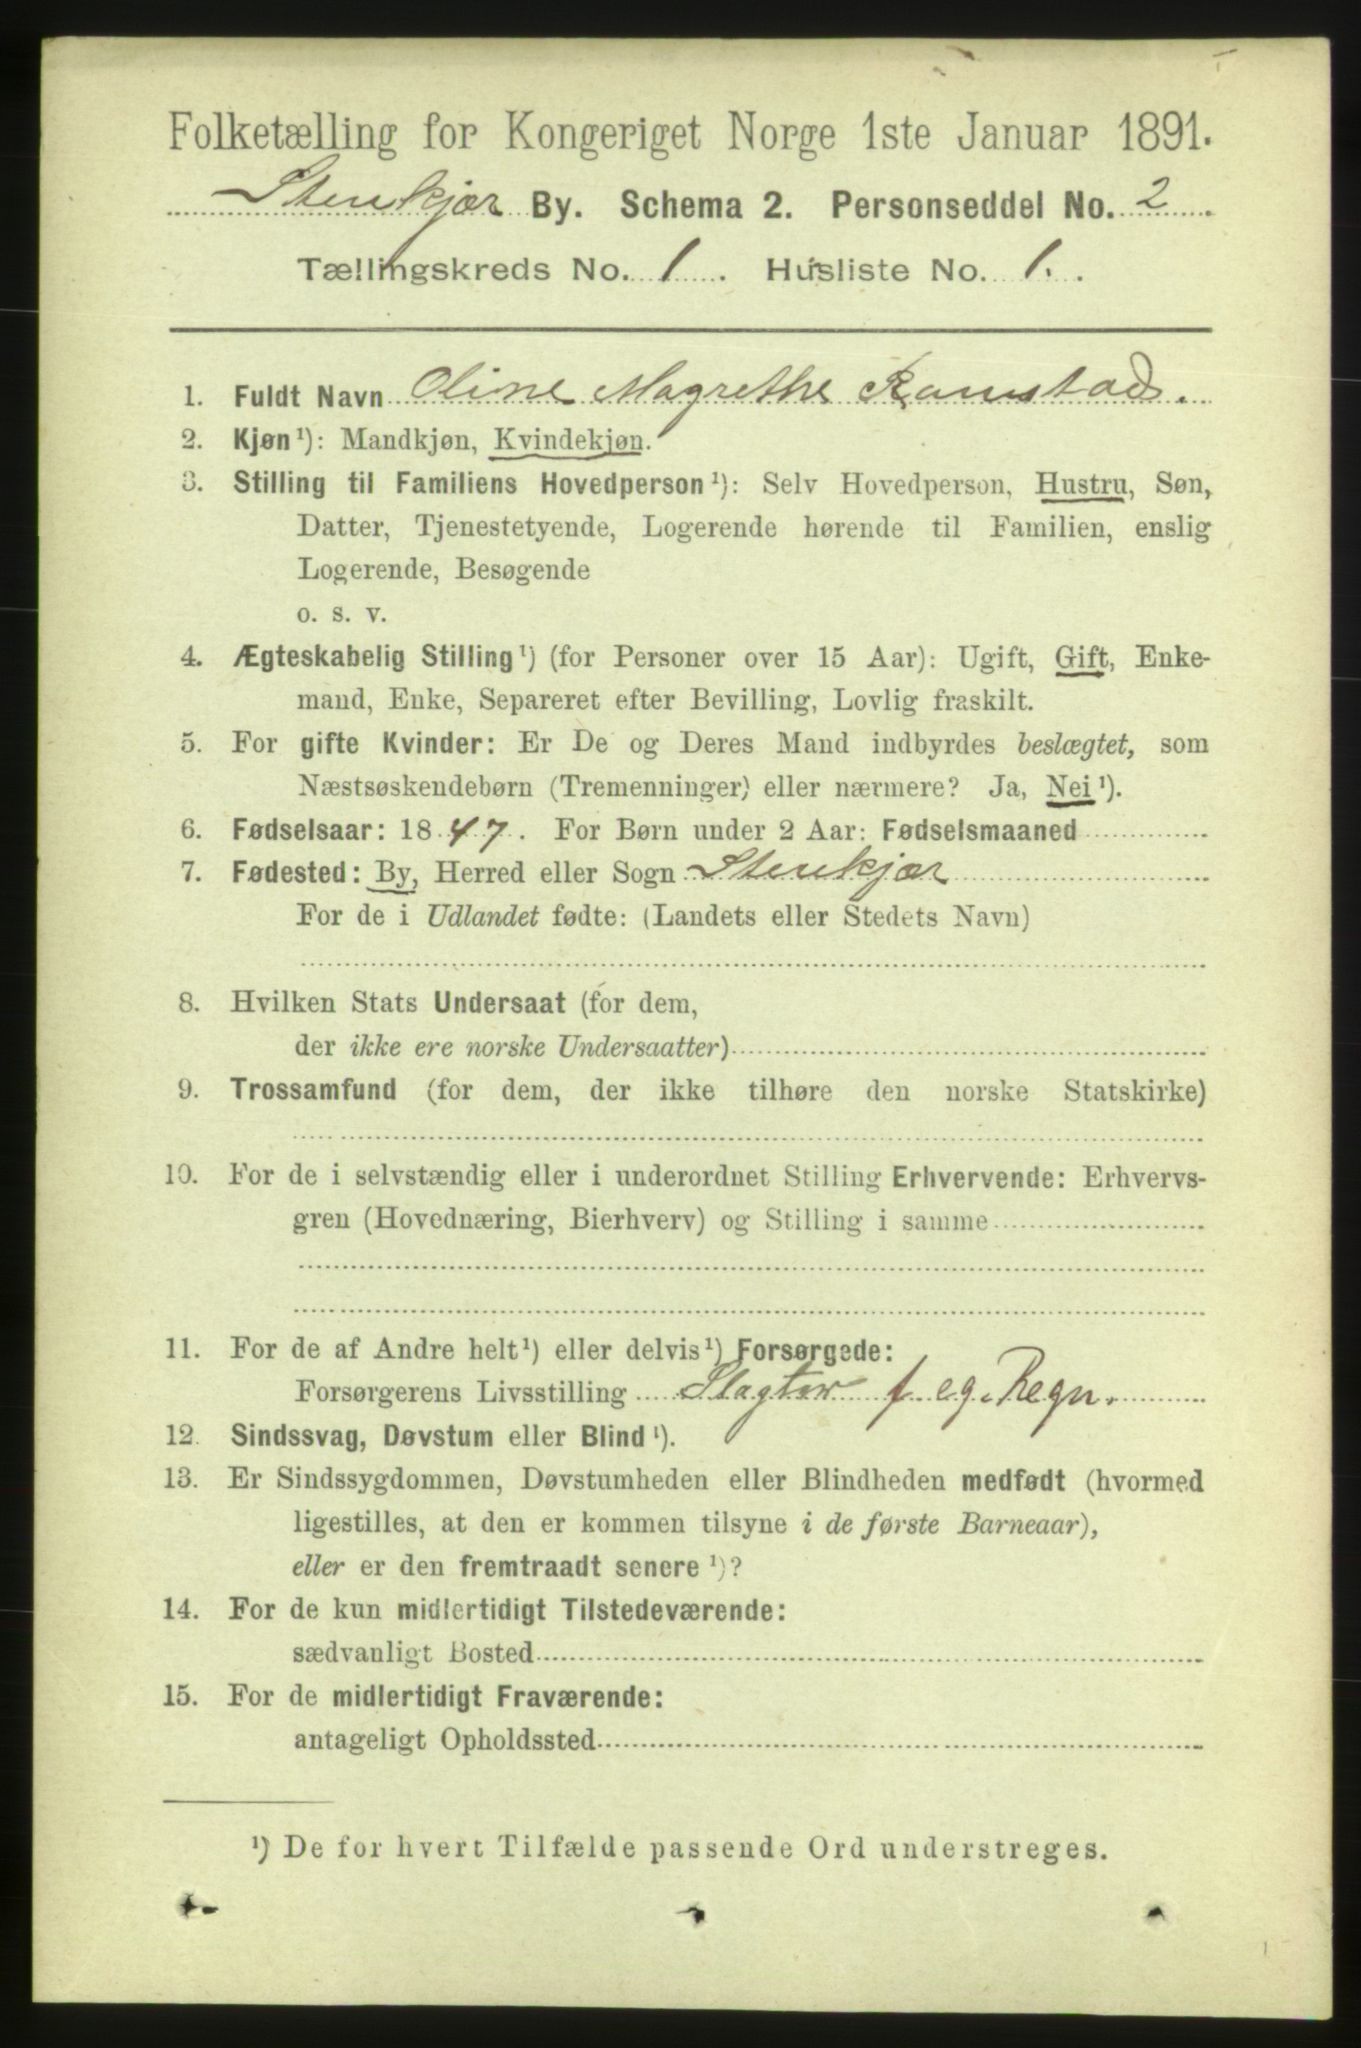 Folketælling for Kongeriget Norge 1ste Januar 1891.
Stenkjær By. Schema 2. Personseddel No. 2
Tællingskreds No. 1. Husliste No. 1.
1. Fuldt Navn Oline Magrethe Ramstad.
2. Kjøn ¹): Mandkjøn, Kvindekjøn.
3. Stilling til Familiens Hovedperson ¹): Selv Hovedperson, Hustru, Søn,
Datter, Tjenestetyende, Logerende hørende til Familien, enslig
Logerende, Besøgende
o. s. v.
4. Ægteskabelig Stilling ¹) (for Personer over 15 Aar): Ugift, Gift, Enke-
mand, Enke, Separeret efter Bevilling, Lovlig fraskilt.
5. For gifte Kvinder: Er De og Deres Mand indbyrdes beslægtet, som
Næstsøskendebørn (Tremenninger) eller nærmere? Ja, Nei ¹).
6. Fødselsaar: 1847. For Børn under 2 Aar: Fødselsmaaned
7. Fødested: By, Herred eller Sogn Stenkjær
For de i Udlandet fødte: (Landets eller Stedets Navn)
8. Hvilken Stats Undersaat (for dem,
der ikke ere norske Undersaatter)
9. Trossamfund (for dem, der ikke tilhøre den norske Statskirke)
10. For de i selvstændig eller i underordnet Stilling Erhvervende: Erhvervs-
gren (Hovednæring, Bierhverv) og Stilling i samme
11. For de af Andre helt ¹) eller delvis ¹) Forsørgede:
Forsørgerens Livsstilling Slagter f eg. Regn.
12. Sindssvag, Døvstum eller Blind ¹).
13. Er Sindssygdommen, Døvstumheden eller Blindheden medfødt (hvormed
ligestilles, at den er kommen tilsyne i de første Barneaar),
eller er den fremtraadt senere ¹)?
14. For de kun midlertidigt Tilstedeværende:
sædvanligt Bosted
15. For de midlertidigt Fraværende:
antageligt Opholdssted
¹) De for hvert Tilfælde passende Ord understreges.